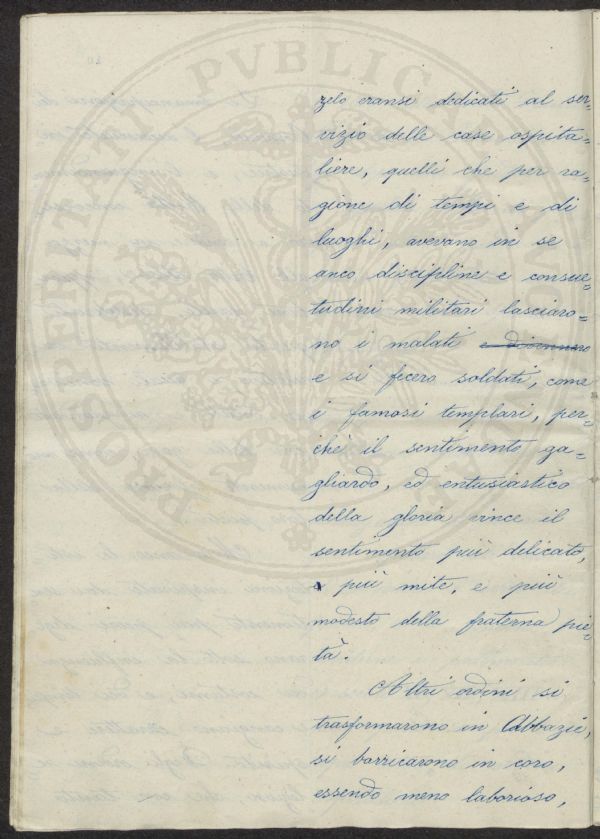 zelo eransi dedicati al ser=
vizio delle case ospita=
liere, quelli che per ra=
gione di tempi e di
luoghi, avevano in se
anco discipline e consue=
tudini militari lasciaro=
no i malati e divennero
e si fecero soldati, come
i famosi templari, per=
chè il sentimento ga=
gliardo, ed entusiastico
della gloria vince il
sentimento più delicato,
più mite, e più
modesto della fraterna pie=
tà.
Altri ordini si
trasformarono in Abbazie,
si barricarono in coro,
essendo meno laborioso,
PROSPERITATI PVBLICAE